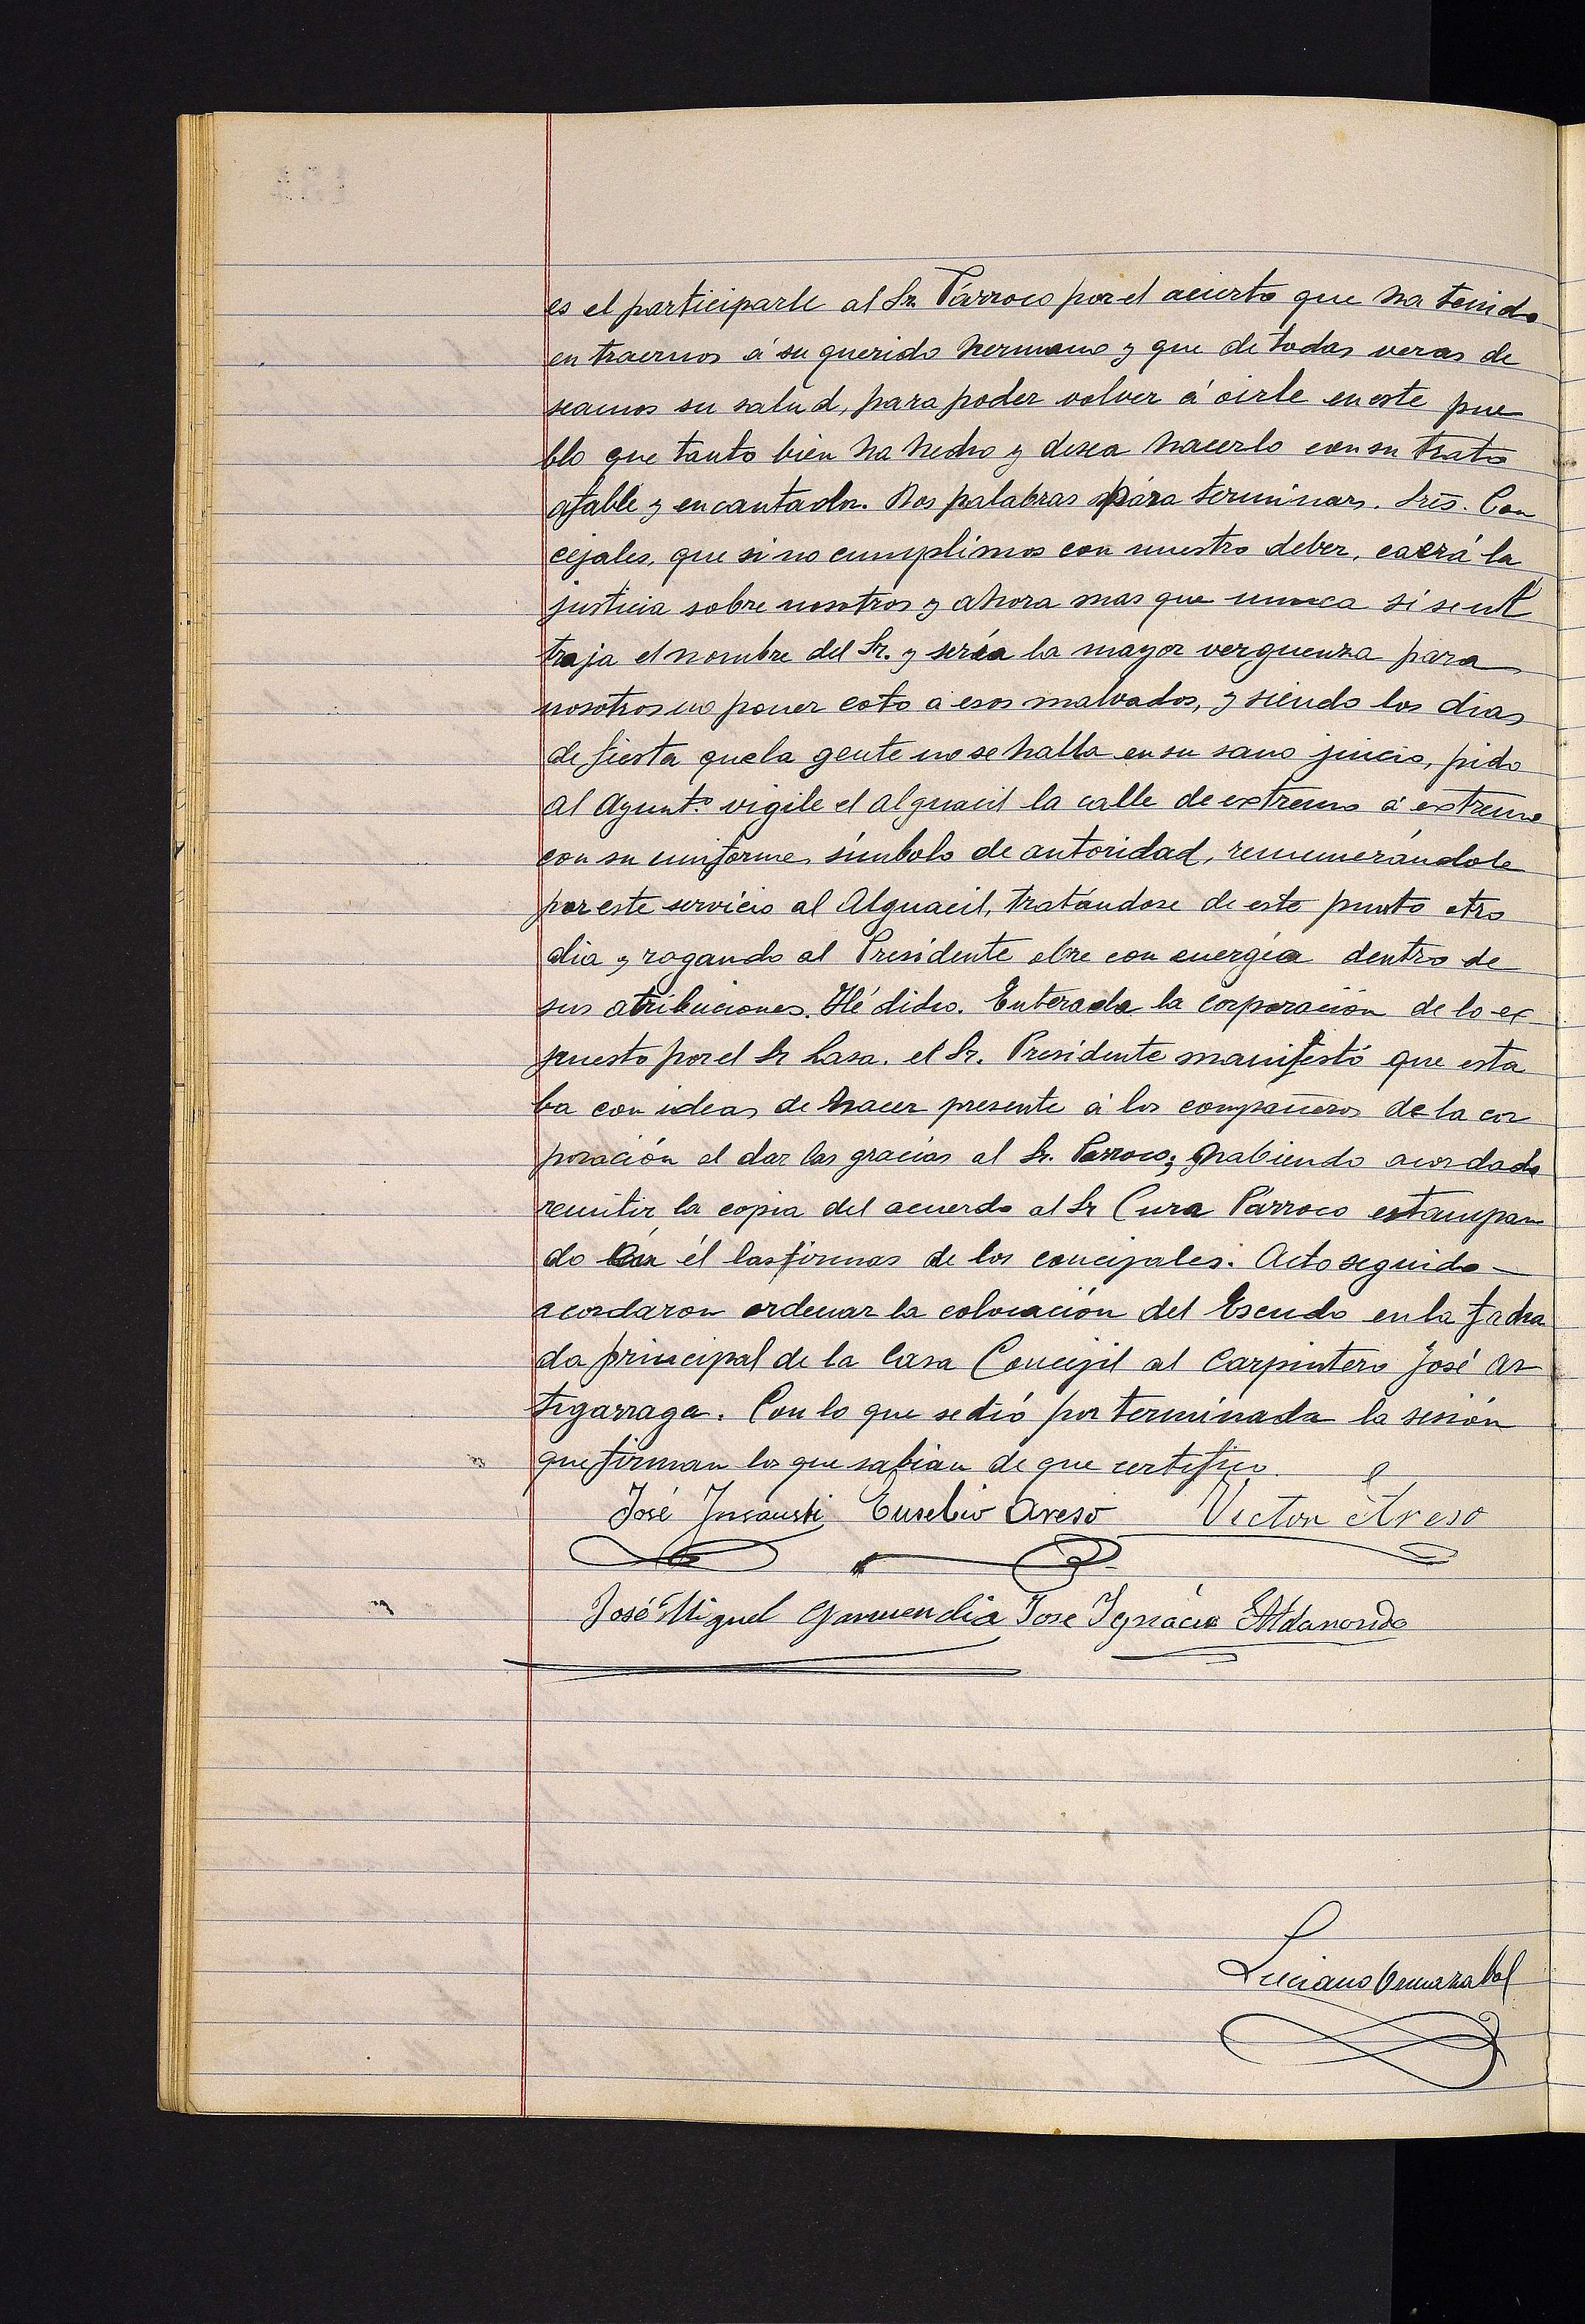 es el participarle al Sr. Párroco por el acierto que ha tenido
en traernos á su querido hermano y que de todas veras de
seamos su salud, para poder volver á oirle en este pue
blo que tanto bien ha hecho y desea hacerlo con su trato
afable y encantador. Dos palabras para terminar. Sres. Con
cejales, que si no cumplimos con nuestro deber, caerá la
justicia sobre nosotros y ahora mas que nunca si se ul
traja el nombre del Sr. y sería la mayor verguenza para
nosotros no poner coto a esos malvados, y siendo los dias
de fiesta que la gente no se halla en su sano juicio, pido
al Ayunt.º vigile el alguacil la calle de extremo á extremo
con su uniforme, símbolo de autoridad, remunerándole
por este servicio al Alguacil, tratándose de este punto otro
dia y rogando al Presidente obre con energía dentro de
sus atribuciones. Hé dicho. Enterada la corporación de lo ex
puesto por el Sr Lasa. el Sr. Presidente manifestó que esta
ba con ideas de hacer presente á los compañeros de la cor
poración el dar las gracias al Sr. Párroco; habiendo acordado
remitir la copia del acuerdo al Sr Cura Párroco estampan
do en él las firmas de los concejales. Acto seguido
acordaron ordenar la colocación del Escudo en la facha
da principal de la Casa Concejil al Carpintero José As
tigarraga. Con lo que se dió por terminada la sesión
que firman los que sabian de que certifico.
José Insausti Eusebio Areso Victor Areso
José Miguel Garmendia Jose Ignacio Aldanondo
Luciano